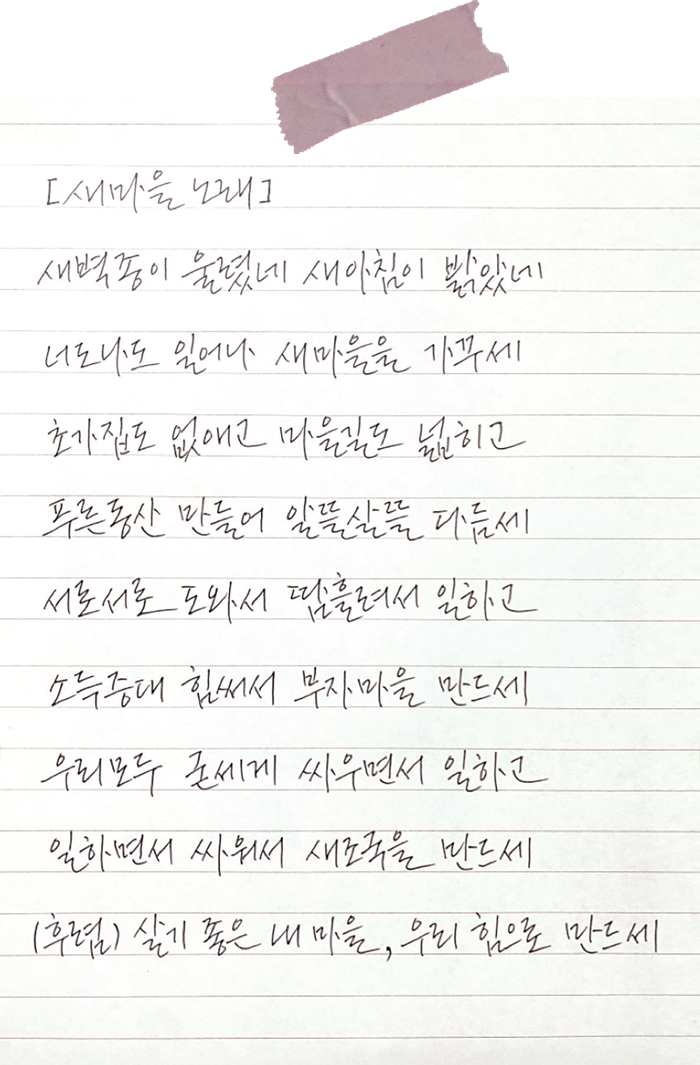 [새마을 노래]
새벽종이 울렸네 새아침이 밝았네
너도나도 일어나 새마을을 가꾸세
초가집도 없애고 마을길도 넓히고
푸른동산 만들어 알뜰살뜰 다듬세
서로서로 도와서 땀흘려서 일하고
소득증대 힘써서 부자마을 만드세
우리모두 굳세게 싸우면서 일하고
일하면서 싸워서 새조국을 만드세
(후렴) 살기 좋은 내 마을, 우리 힘으로 만드세